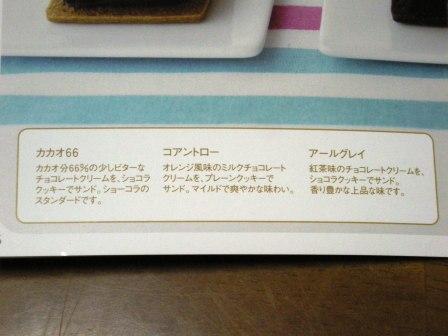 カカオ66
カカオ分66%の少しビターな
チョコレートクリームを、ショコラ
クッキーでサンド。ショーコラの
スタンダードです。
コアントロー
オレンジ風味のミルクチョコレート
クリームを、プレーンクッキーで
サンド。マイルドで爽やかな味わい。
アールグレイ
紅茶味のチョコレートクリームを、
ショコラクッキーでサンド。
香り豊かな上品な味です。